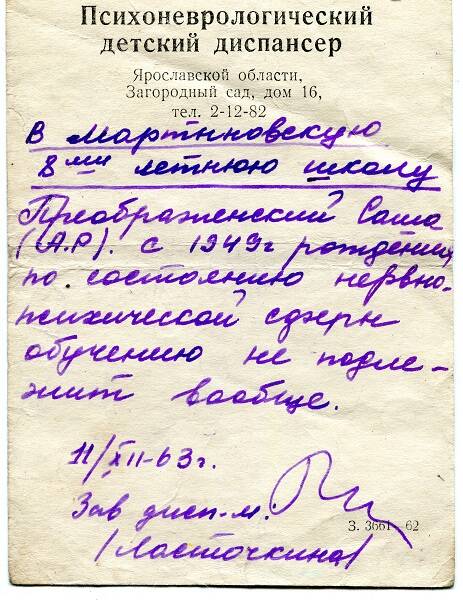 Психоневрологический
детский диспансер
Ярославской области,
Загородный сад, дом 16,
тел. 2-12-82
В Мартыновскую
8ми летнюю школу
Преображенский Саша
(А.Р). с 1949г рождения
по состоянию нервно-
психической сферы
обучению не подле-
жит вообще.
11/XII-63г.
Зав дисп-м.
З. 3661—62
/Ласточкина/